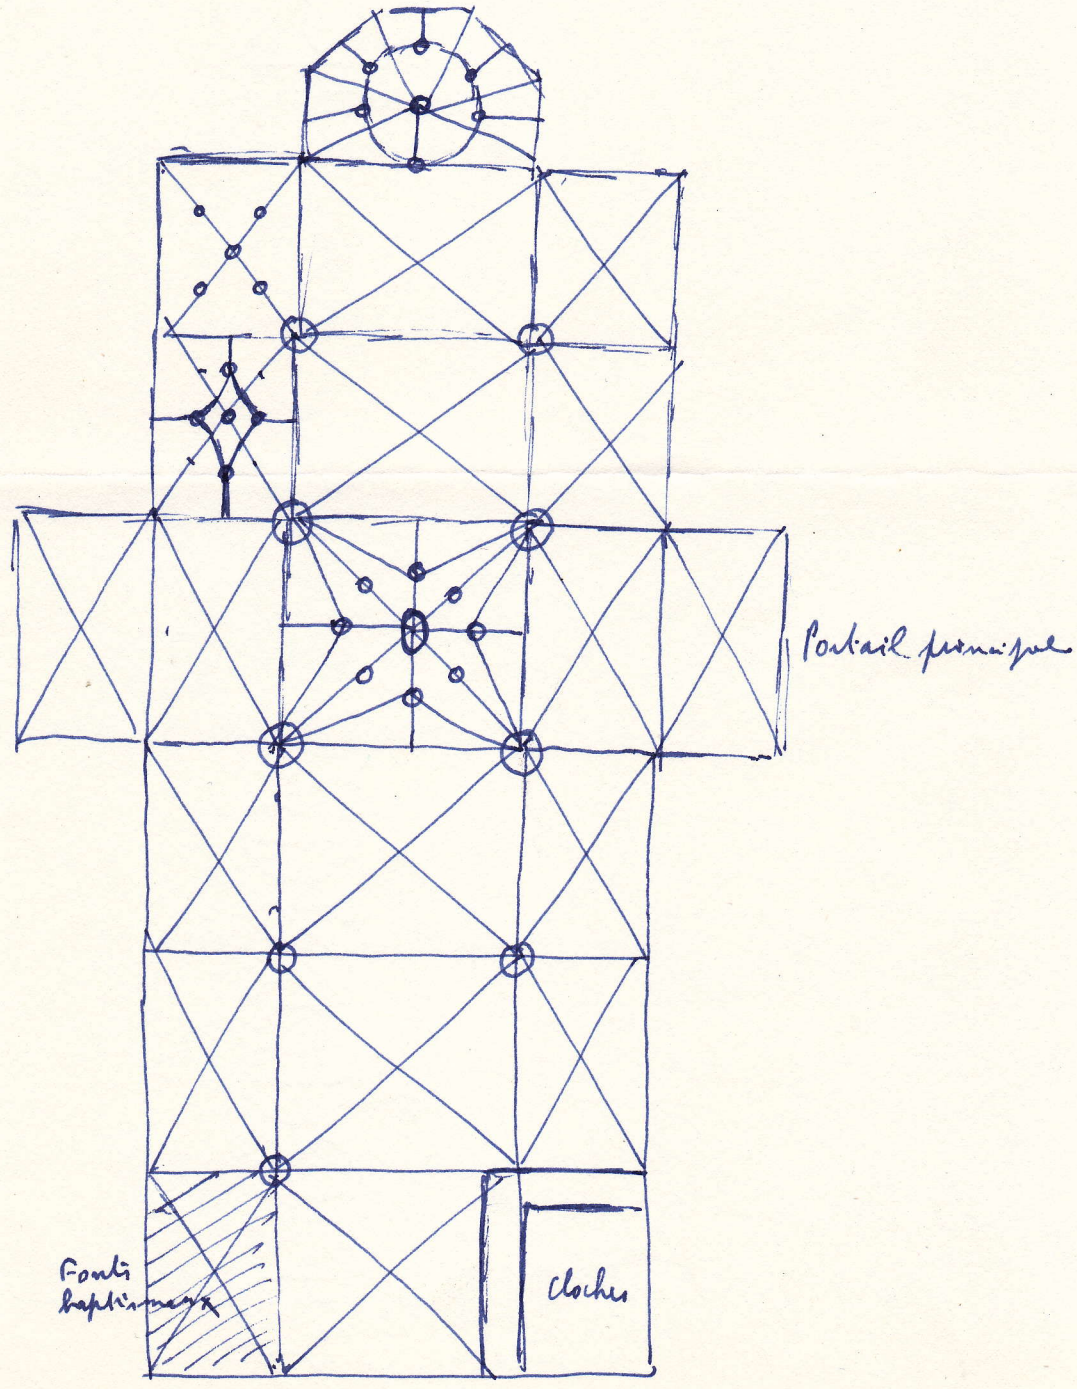 Portail principal
Fonts
baptismaux
cloches